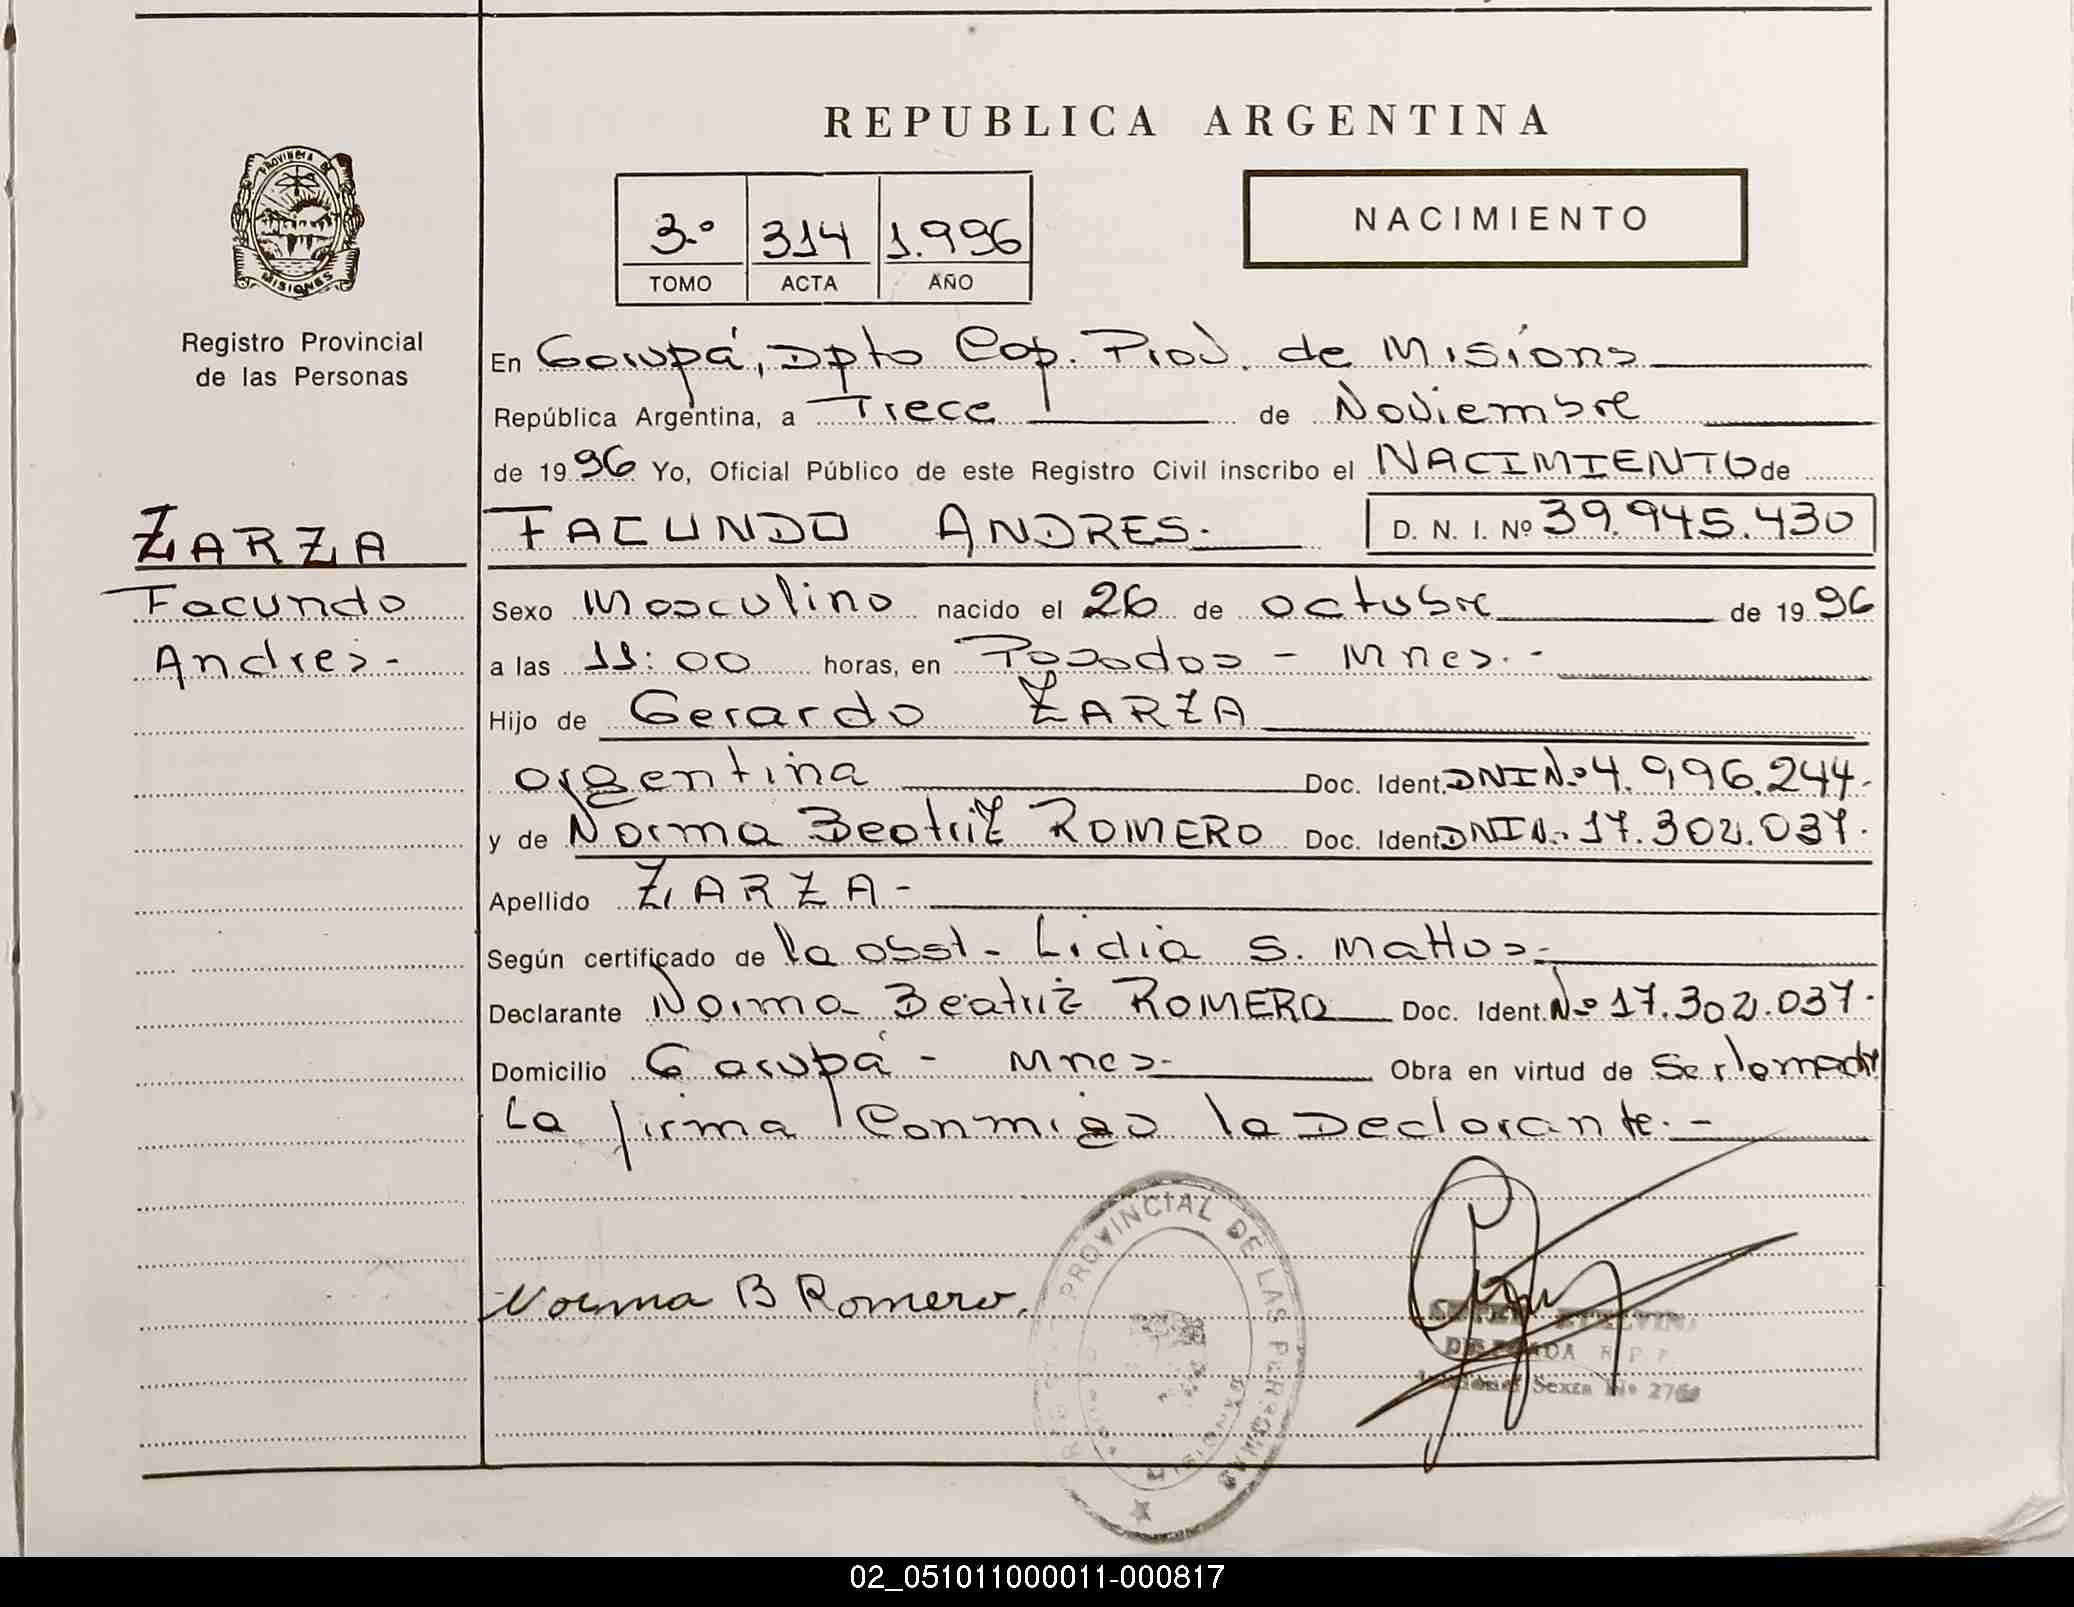 REPUBLICA ARGENTINA
PROVINCIA DE
MISIONES
3º 314 1.996
TOMO ACTA AÑO
NACIMIENTO
Registro Provincial
de las Personas
En Garupá, Dpto Cap. Prov. de Misiones
República Argentina, a Trece de Noviembre
de 1996 Yo, Oficial Público de este Registro Civil inscribo el NACIMIENTO de
ZARZA
FACUNDO ANDRES.- D. N. I. Nº 39.945.430
Facundo
Andres-
Sexo Masculino nacido el 26 de octubre de 1996
a las 11:00 horas, en Posadas - Mnes.-
Hijo de Gerardo ZARZA
argentina Doc. Ident. DNI Nº 4.996.244.
y de Norma Beatriz ROMERO Doc. Ident DNI N.- 17.302.037.
Apellido ZARZA-
Según certificado de la obst- Lidia S. Mattos-
Declarante Norma Beatriz ROMERO Doc. Ident. Nº 17.302.037.
Domicilio Garupá - Mnes- Obra en virtud de Ser la madre
La firma Conmigo la Declarante.-
Norma B Romero.
PROVINCIAL DE LAS PERSONAS
DELEGADA R P P
Sexta Nº
02_051011000011-000817